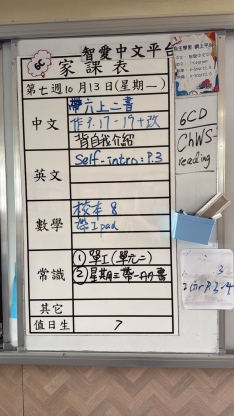 智愛中文平台
家課表
第七週10月13日(星期一)
中文
帶六上二書
作P.17-19+改
背自我介紹
英文
Self-intro: P.3
數學
校本8
帶Ipad
常識
①單工(單元二)
②星期三帶一月书
其它
值日生
7
6CD
ChWS-
reading
3